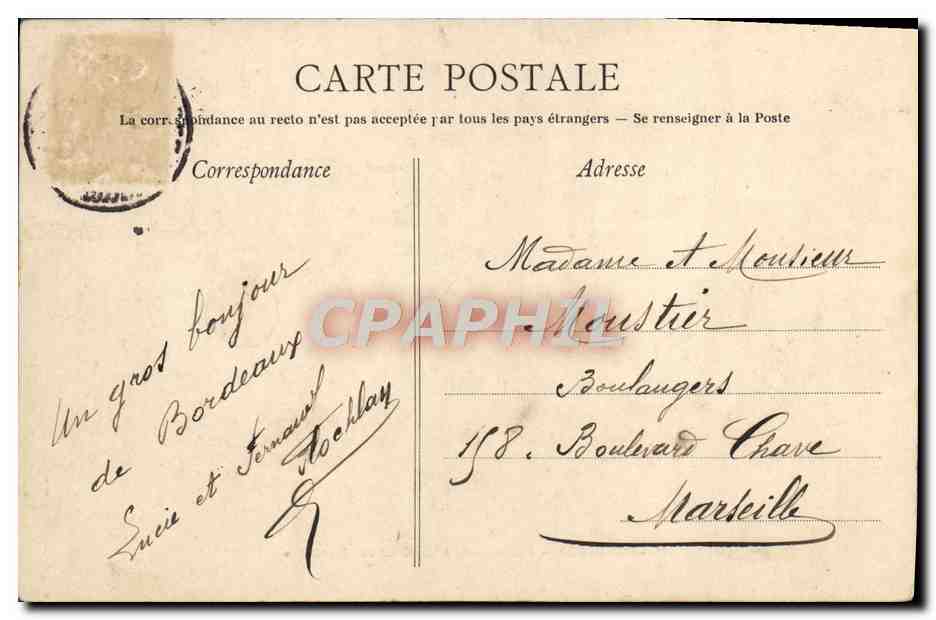 CARTE POSTALE
La correspondance au recto n'est pas acceptée par tous les pays étrangers — Se renseigner à la Poste
Correspondance
Adresse
Un gros bonjour
de Bordeaux
Lucie et Fernand
Madame et Monsieur
Moustier
Boulangers
158. Boulevard Chave
Marseille
CPAPHIL